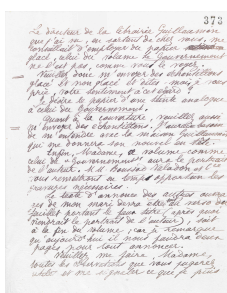 373
Le directeur de la librairie Guillaumin
que j'ai vu en sortant de chez vous, me
conseillait d'employer du papier
glacé, celui du volume le Gouvernement
ne l'est pas, comme vous le voyez.
Veuillez donc m'envoyer des échantillons
glacé et non glacé et dites-moi, à
prix, votre sentiment à cet égard ?
Je désire le papier d'une teinte analogue
à celui du Gouvernement.
Quant à la couverture, veuillez aussi
m'envoyer des échantillons
de m'entendre avec la maison Guillaumin
qui me donnera son nouvel
Enfin, Madame, le volume comme
celui de "Gouvernement" aura le portrait
de l'auteur. M.M.
vous remettront en temps opportun les
gravures nécessaires.
Le texte d'annonce des autres ouvrages
de mon mari devra être au verso du
feuillet portant le faux titre (après quoi
viendrait le portrait de l'auteur), soit
à la fin du volume, car je remarque
qu'aujourd'hui il nous faudra deux
pages pour cette annonce.
Veuillez me faire, Madame,
toutes les observations que vous jugerez
utiles et me signaler ce que je puis